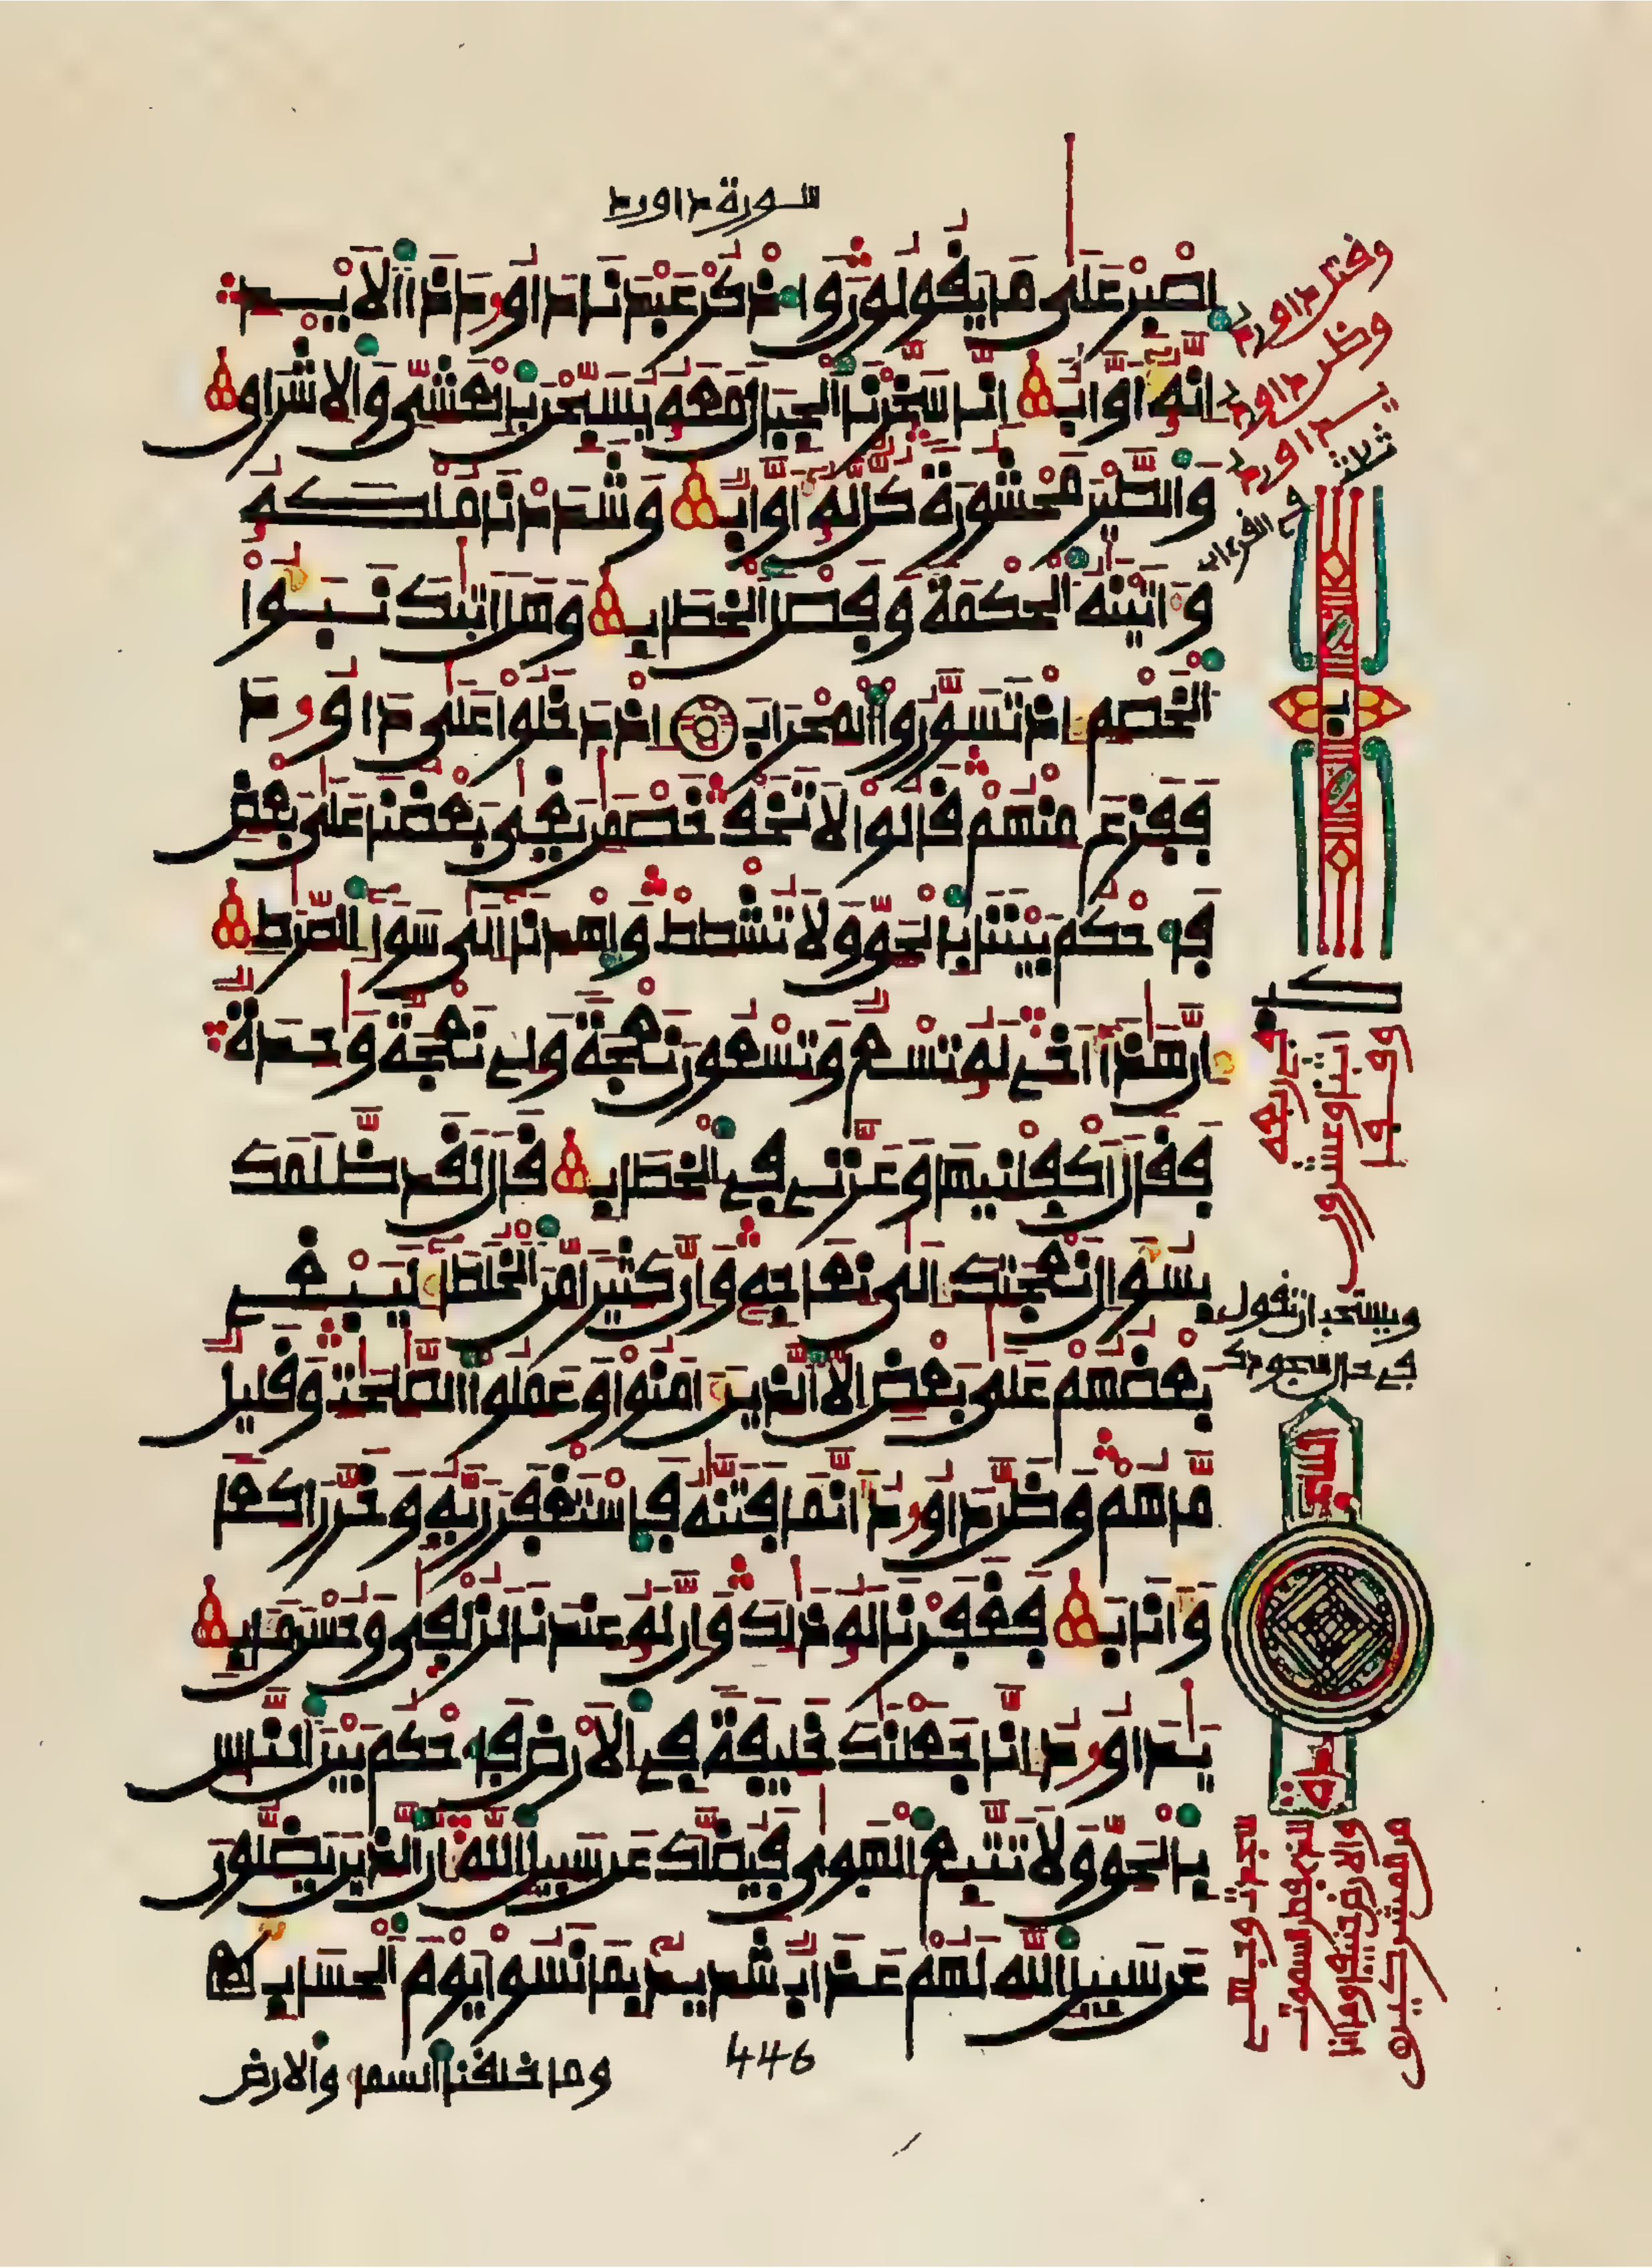 سورة داوود
اصبر على ما يقولون واذكر عبدنا داوود ذا الايد
انه اواب انا سخرنا الجبال معه يسبحن بالعشي والاشراق
والطير محشورة كل له اواب وشددنا ملكه
واتينه الحكمة وفصل الخطاب وهل اتيك نبؤا
الخصم اذ تسوروا المحراب اذ دخلوا على داوود
ففزع منهم قالوا لا تخف خصمن بغى بعضنا على بعض
فاحكم بيننا بالحق ولا تشطط واهدنا الى سواء الصرط
ان هذا اخي له تسع وتسعون نعجة ولي نعجة وحدة
فقال اكفلنيها وعزني في الخطاب قال لقد ظلمك
بسؤال نعجتك الى نعاجه وان كثيرا من الخلطاء ليبغي
بعضهم على بعض الا الذين امنوا وعملوا الصلحت وقليل
ما هم وظن داوود انما فتنه فاستغفر ربه وخر راكعا
واناب فغفرنا له ذلك وان له عندنا لزلفى وحسن ماب
يداوود انا جعلنك خليفة في الارض فاحكم بين الناس
بالحق ولا تتبع الهوى فيضلك عن سبيل الله ان الذين يضلون
عن سبيل الله لهم عذاب شديد بما نسوا يوم الحساب
446
وما خلقنا السما والارض
وقتل داوود
وظن داوود
يداوود
ثلاث
في القرءان
ويستحب ان تقول
في حال سجودك
السجدة
وجهت وجهي
للذي فطر السموت
والارض حنيفا وما انا
من المشركين